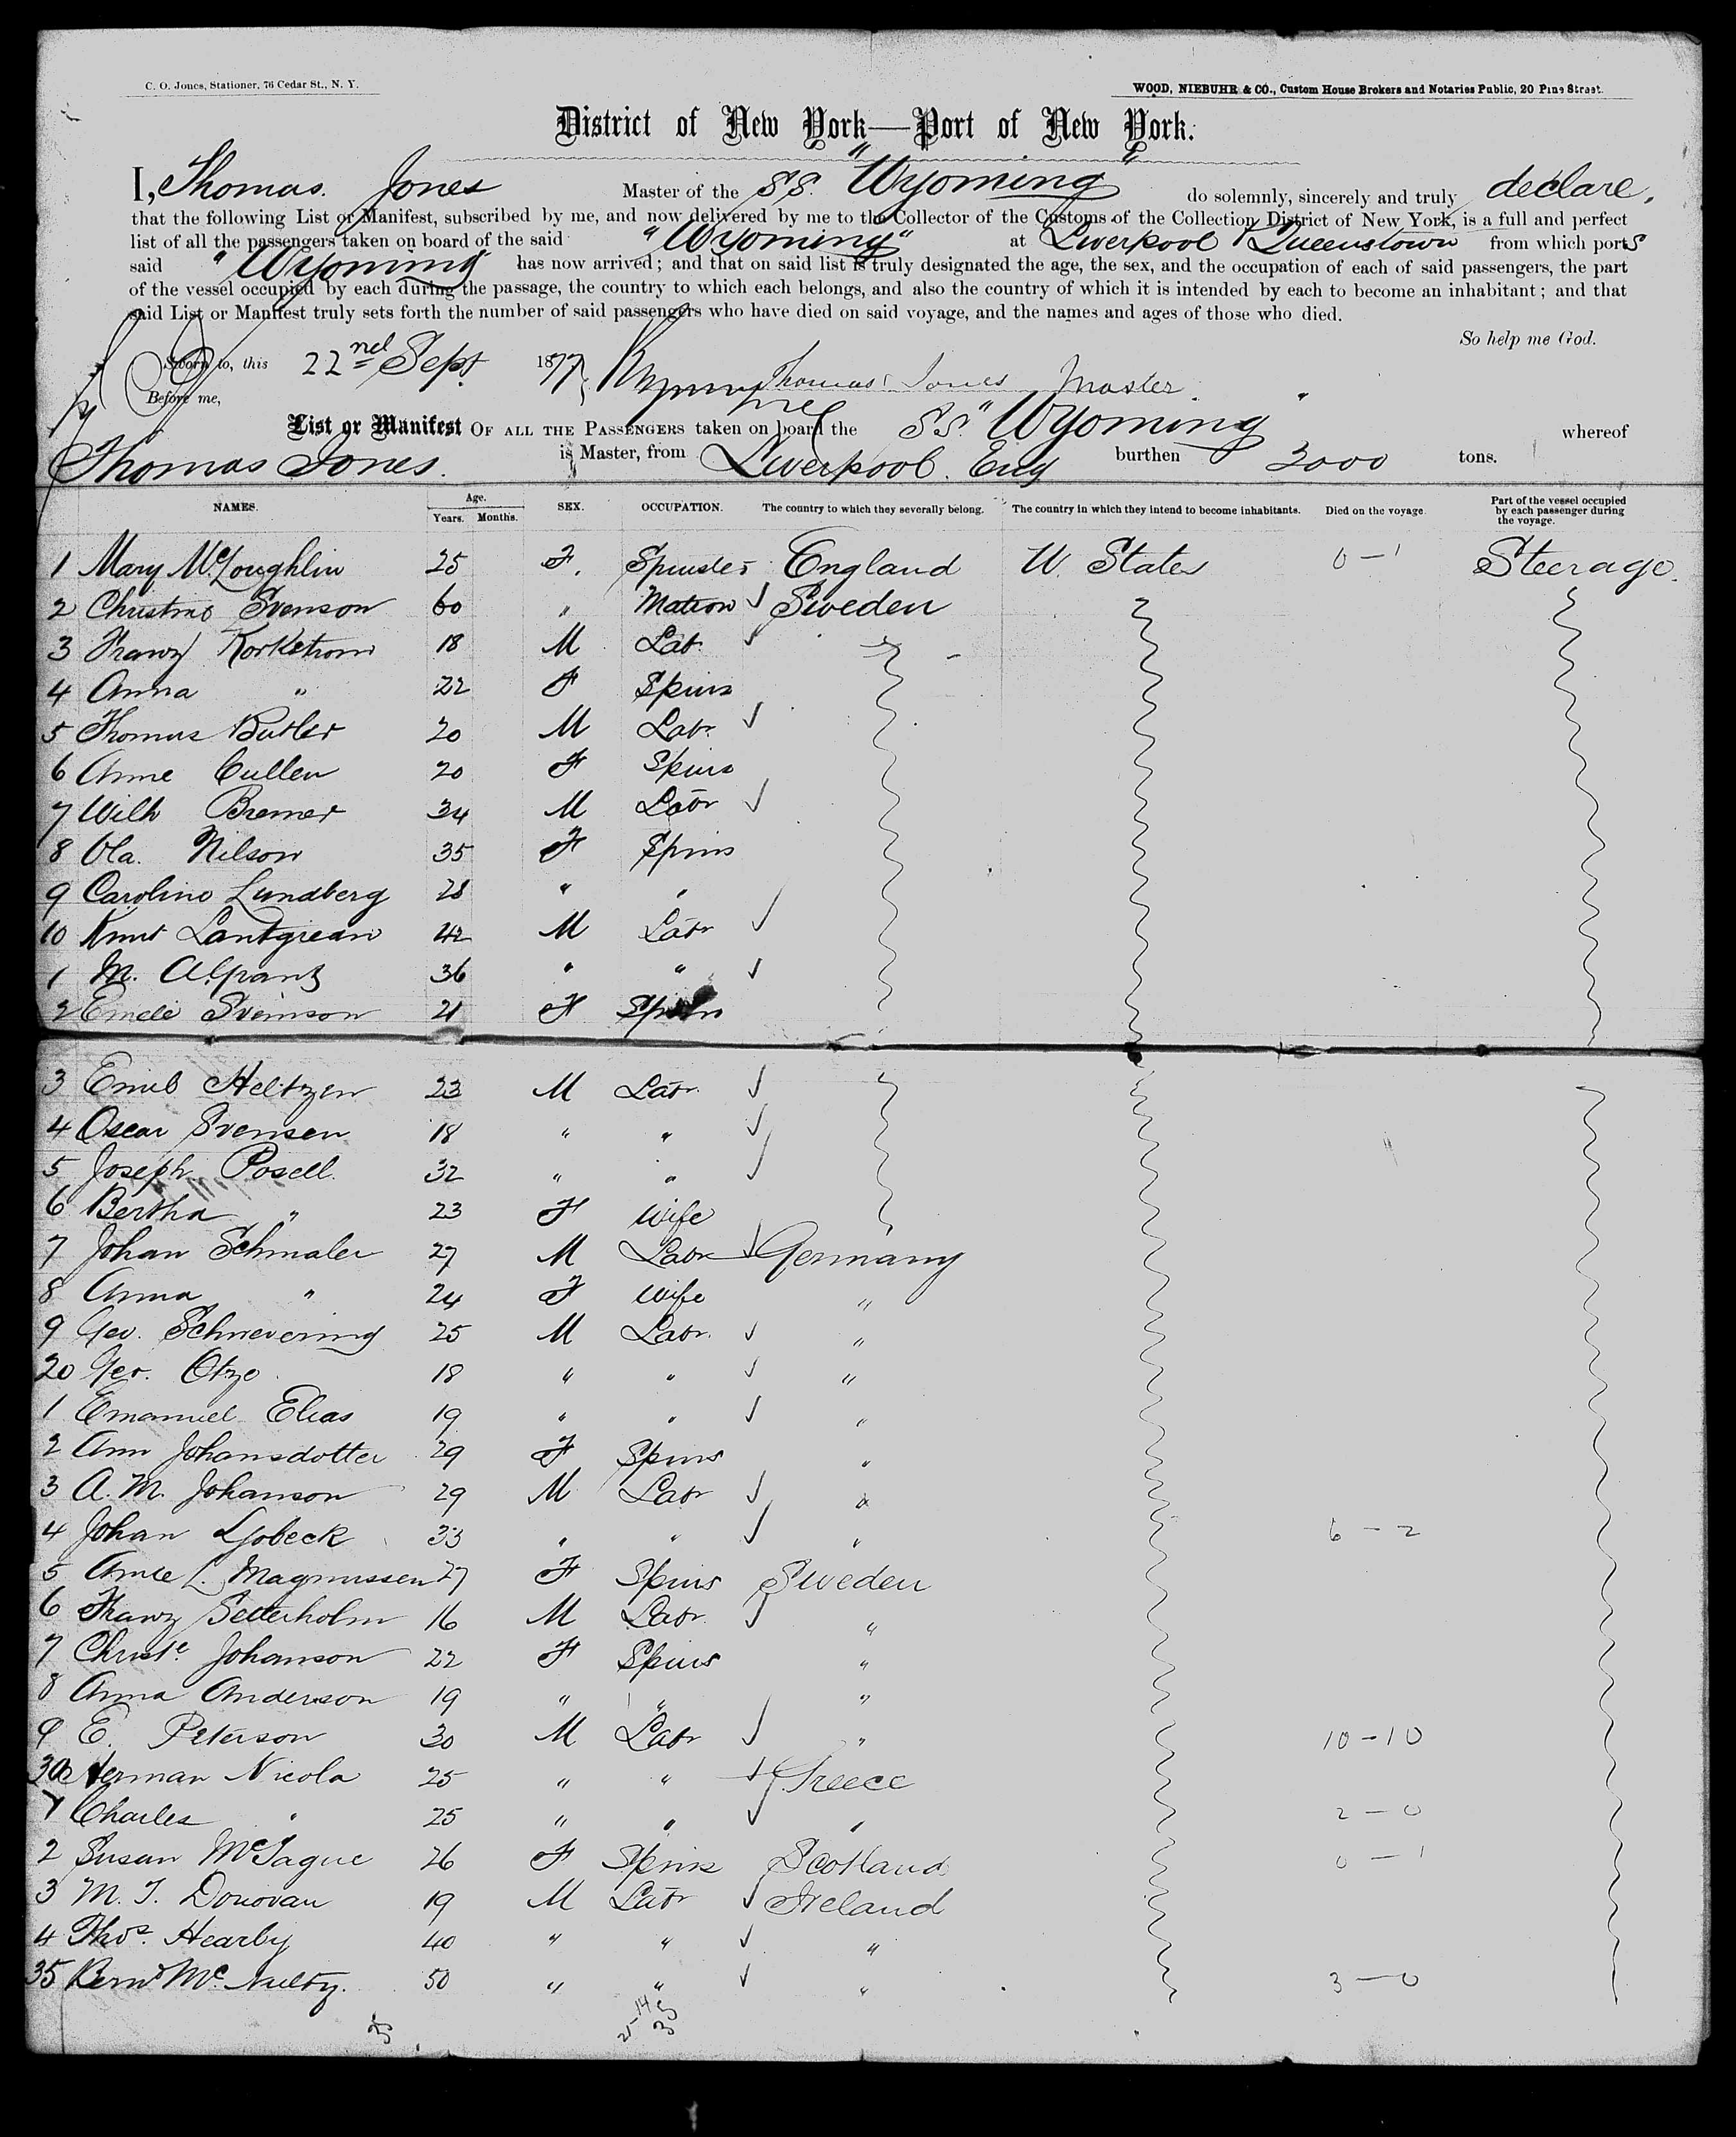 C. O. Jones, Stationer, 76 Cedar St., N. Y.
WOOD, NIEBUHR & CO., Custom House Brokers and Notaries Public, 20 Pine Street.
District of New York—Port of New York.
I, Thomas Jones Master of the S.S. "Wyoming" do solemnly, sincerely and truly declare,
that the following List or Manifest, subscribed by me, and now delivered by me to the Collector of the Customs of the Collection District of New York, is a full and perfect
list of all the passengers taken on board of the said "Wyoming" at Liverpool & Queenstown from which ports
said "Wyoming" has now arrived; and that on said list is truly designated the age, the sex, and the occupation of each of said passengers, the part
of the vessel occupied by each during the passage, the country to which each belongs, and also the country of which it is intended by each to become an inhabitant; and that
said List or Manifest truly sets forth the number of said passengers who have died on said voyage, and the names and ages of those who died.
So help me God.
Sworn to, this 22nd Sept 1877 Thomas Jones Master
Before me,
List or Manifest OF ALL THE PASSENGERS taken on board the S.S. "Wyoming" whereof
Thomas Jones. is Master, from Liverpool. Eng burthen 3000 tons.
NAMES. Age. Years. Months. SEX. OCCUPATION. The country to which they severally belong. The country in which they intend to become inhabitants. Died on the voyage. Part of the vessel occupied by each passenger during the voyage.
1 Mary McLoughlin 25 F. Spinster England U. States 0 - 1 Steerage.
2 Christine Svenson 60 " Matron Sweden
3 Franz Korkstrom 18 M Lab.
4 Anna " 22 F Spins
5 Thomas Butler 20 M Labr.
6 Anne Cullen 20 F Spins
7 Wilh Bremer 34 M Labr
8 Ola. Nilson 35 F Spins
9 Caroline Lundberg 28 " "
10 Knut Lantgrean 42 M Labr
1 M. Alfrant 36 " "
2 Emele Svenson 21 F Spins
3 Emil Heltzen 23 M Labr.
4 Oscar Svensen 18 " "
5 Joseph Posell. 32 " "
6 Bertha " 23 F Wife
7 Johan Schmaler 27 M Labr Germany
8 Anna " 24 F Wife "
9 Geo. Schnevering 25 M Labr. "
20 Geo. Otze 18 " " "
1 Emanuel Elias 19 " " "
2 Ann Johansdotter 29 F Spins "
3 A. M. Johanson 29 M Labr "
4 Johan Ljobeck 33 " " " 6 - 2
5 Anne L. Magnussen 27 F Spins Sweden
6 Franz Setterholm 16 M Labr. "
7 Christe. Johanson 22 F Spins "
8 Anna Anderson 19 " " "
9 E. Peterson 30 M Labr " 10 - 10
30 Herman Nicola 25 " " Greece
1 Charles " 25 " " " 2 - 0
2 Susan McTague 26 F Spins Scotland 0 - 1
3 M. T. Donovan 19 M Labr Ireland
4 Thos. Hearby 40 " " "
35 Bernd McNulty. 50 " " " 3 - 0
35
21-14
35